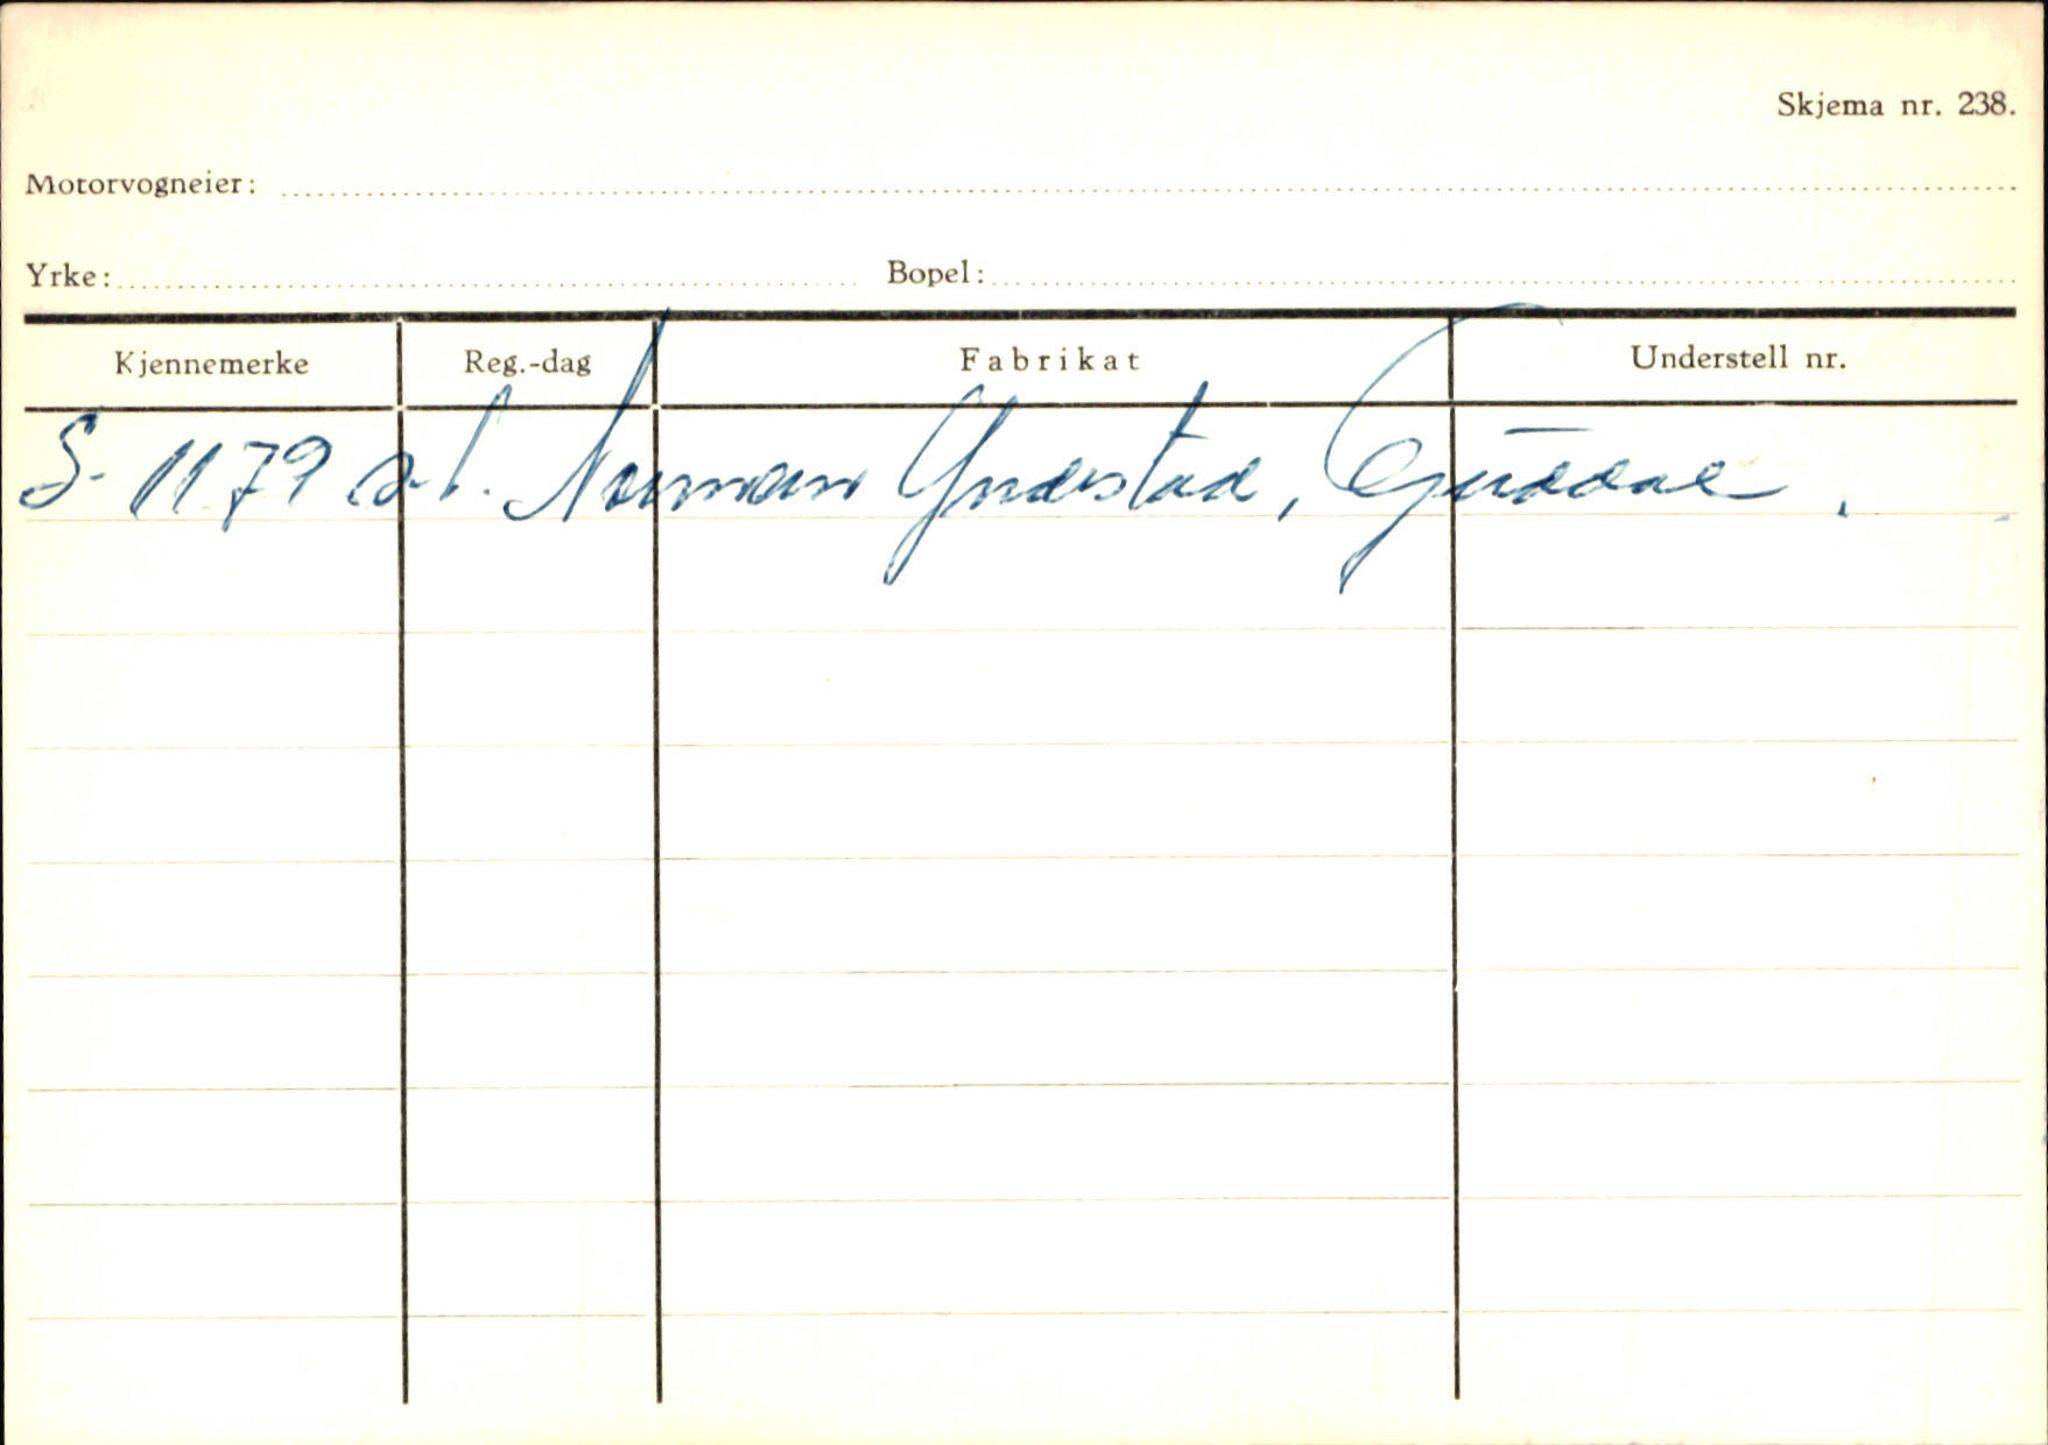 Skjema nr. 238.
Motorvogneier:
Yrke: Bopel:
Kjennemerke Reg.-dag Fabrikat Understell nr.
S- 1179 Norman Yndestad, Guddal.